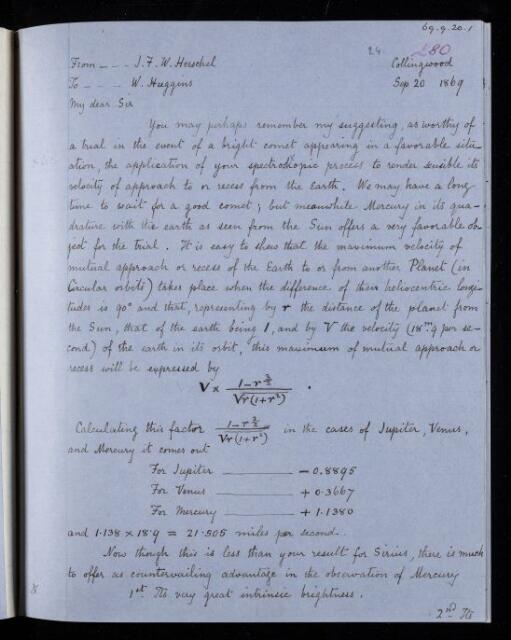 69.9.20.1
24 £80
From _ _ _ J. F. W. Herschel Collingwood
To _ _ _ W. Huggins Sep 20 1869
My dear Sir
You may perhaps remember my suggesting, as worthy of
a trial in the event of a bright comet appearing in a favorable situ-
ation, the application of your spectroscopic process to render sensible its
velocity of approach to or recess from the Earth. We may have a long
time to wait for a good comet; but meanwhile Mercury in its qua-
drature with the earth as seen from the Sun offers a very favorable ob-
ject for the trial. It is easy to shew that the maximum velocity of
mutual approach or recess of the Earth to or from another Planet (in
Circular orbits) takes place when the difference of their heliocentric longi-
tudes is 90° and that, representing by r the distance of the planet from
the Sun, that of the earth being 1, and by V the velocity (18ᵐ·9 per se-
cond) of the earth in its orbit, this maximum of mutual approach or
recess will be expressed by
V × (1−r^(3/2))/√(r(1+r²)) .
Calculating this factor (1−r^(3/2))/√(r(1+r²)) in the cases of Jupiter, Venus,
and Mercury it comes out
For Jupiter ———— − 0.8895
For Venus ———— + 0.3667
For Mercury ———— + 1.1380
and 1.138 × 18.9 = 21.505 miles per second.
Now though this is less than your result for Sirius, there is much
to offer as countervailing advantage in the observation of Mercury
1st Its very great intrinsic brightness.
2nd Its